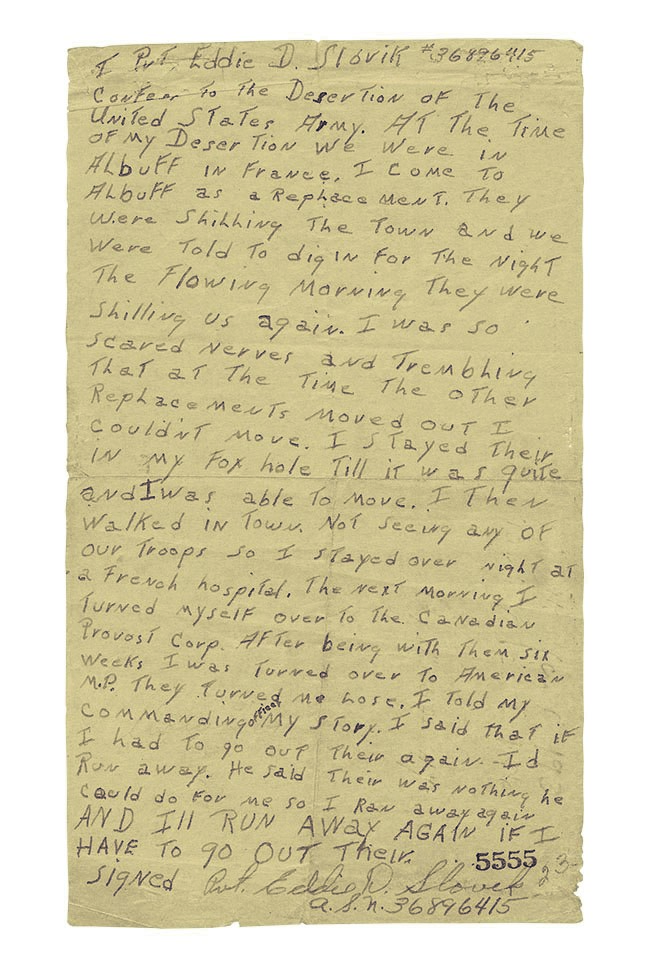 I Pvt. Eddie D. Slovik #36896415
Confess to the Desertion of the
United States Army. At the time
of my Desertion we were in
Albuff in France. I come to
Albuff as a Replacement. They
were shilling the town and we
were told to dig in for the night
The flowing morning they were
shilling us again. I was so
scared nerves and trembling
that at the time the other
Replacements moved out I
couldnt move. I stayed their
in my fox hole till it was quite
and I was able to move. I then
walked in town. Not seeing any of
our troops so I stayed over night at
a French hospital. The next morning I
turned myself over to the Canadian
Provost Corp. After being with them six
weeks I was turned over to American
M.P. They turned me lose. I told my
commanding officer my story. I said that if
I had to go out their again Id
Run away. He said their was nothing he
could do for me so I Ran away again
AND Ill RUN AWAY AGAIN IF I
HAVE TO go OUT Their.
5555
23
signed Pvt. Eddie D. Slovik
a.s.n. 36896415